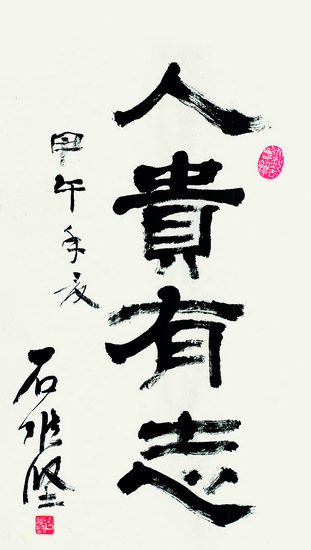 人貴有志
甲午年夏
石维坚